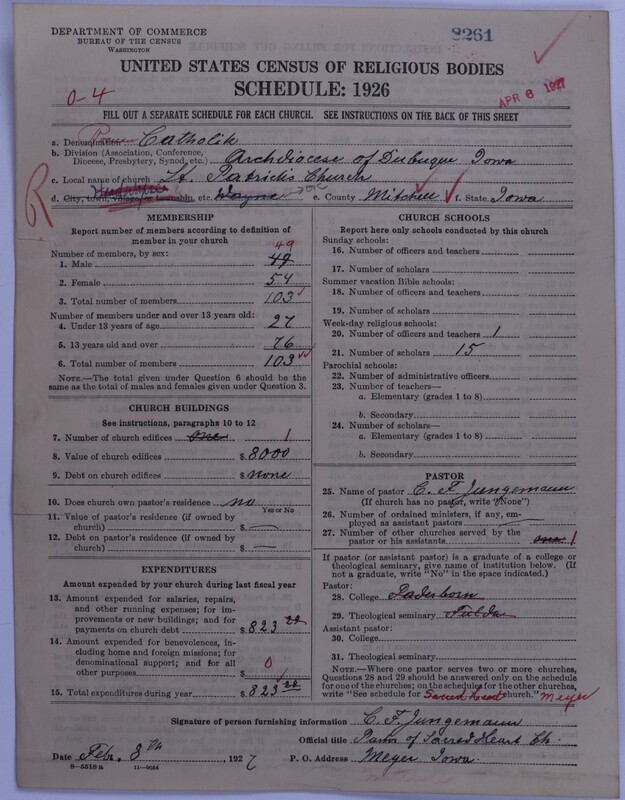 DEPARTMENT OF COMMERCE
BUREAU OF THE CENSUS
WASHINGTON
8261
UNITED STATES CENSUS OF RELIGIOUS BODIES
SCHEDULE: 1926
0-4
APR 6 1927
FILL OUT A SEPARATE SCHEDULE FOR EACH CHURCH. SEE INSTRUCTIONS ON THE BACK OF THIS SHEET
a. Denomination Catholik
b. Division (Association, Conference, Diocese, Presbytery, Synod, etc.) Archdiocese of Dubuque Iowa
c. Local name of church St. Patricks Church
d. City, town, village or township, etc. Wayne e. County Mitchell f. State Iowa
R
MEMBERSHIP
Report number of members according to definition of member in your church
Number of members, by sex:
49
1. Male 49
2. Female 54
3. Total number of members 103
Number of members under and over 13 years old:
4. Under 13 years of age 27
5. 13 years old and over 76
6. Total number of members 103
NOTE.—The total given under Question 6 should be the same as the total of males and females given under Question 3.
CHURCH BUILDINGS
See instructions, paragraphs 10 to 12
7. Number of church edifices one 1
8. Value of church edifices $ 8000
9. Debt on church edifices $ none
10. Does church own pastor's residence no
Yes or No
11. Value of pastor's residence (if owned by church) $ —
12. Debt on pastor's residence (if owned by church) $ —
EXPENDITURES
Amount expended by your church during last fiscal year
13. Amount expended for salaries, repairs, and other running expenses; for improvements or new buildings; and for payments on church debt $ 823
14. Amount expended for benevolences, including home and foreign missions; for denominational support; and for all other purposes $ 0
15. Total expenditures during year $ 823
CHURCH SCHOOLS
Report here only schools conducted by this church
Sunday schools:
16. Number of officers and teachers
17. Number of scholars
Summer vacation Bible schools:
18. Number of officers and teachers
19. Number of scholars
Week-day religious schools:
20. Number of officers and teachers 1
21. Number of scholars 15
Parochial schools:
22. Number of administrative officers
23. Number of teachers—
a. Elementary (grades 1 to 8)
b. Secondary
24. Number of scholars—
a. Elementary (grades 1 to 8)
b. Secondary
PASTOR
25. Name of pastor C. F. Jungemann
(If church has no pastor, write "None")
26. Number of ordained ministers, if any, employed as assistant pastors —
27. Number of other churches served by the pastor or his assistants one 1
If pastor (or assistant pastor) is a graduate of a college or theological seminary, give name of institution below. (If not a graduate, write "No" in the space indicated.)
Pastor:
28. College Paderborn
29. Theological seminary Fulda
Assistant pastor:
30. College
31. Theological seminary
NOTE.—Where one pastor serves two or more churches, Questions 28 and 29 should be answered only on the schedule for one of the churches; on the schedules for the other churches, write "See schedule for Sacred Heart church." Meyer
Signature of person furnishing information C. F. Jungemann
Official title Pastor of Sacred Heart Ch.
Date Feb. 8th, 1927 P. O. Address Meyer Iowa.
8—5518 a 11—9034